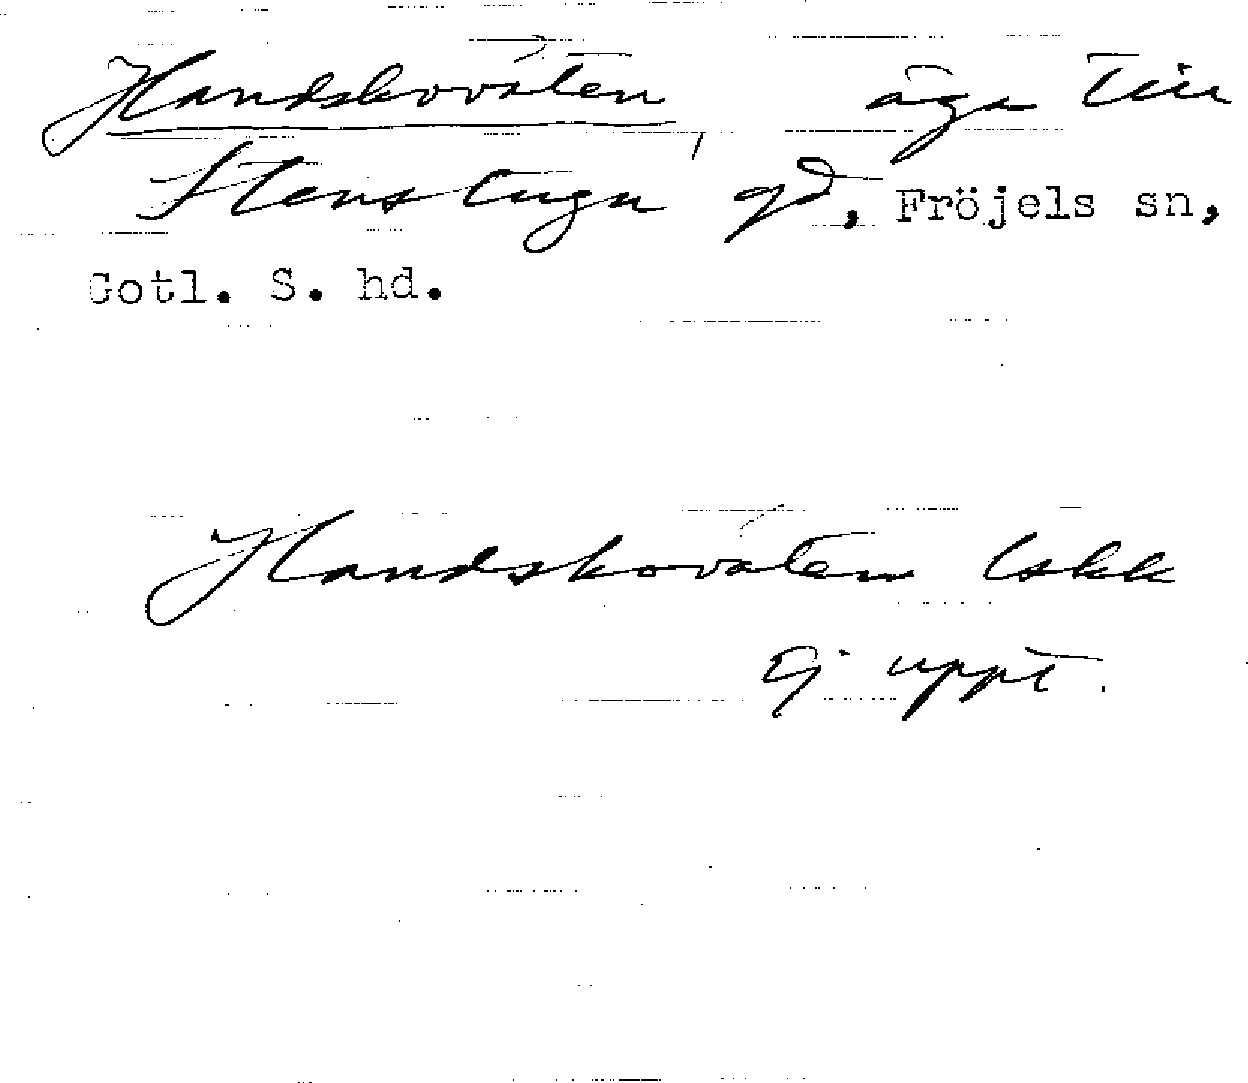 Handskovåten, äga till
Stenstugu gd, Fröjels sn,
Gotl. S. hd.
Handskovåten Lskk
ej uppt.